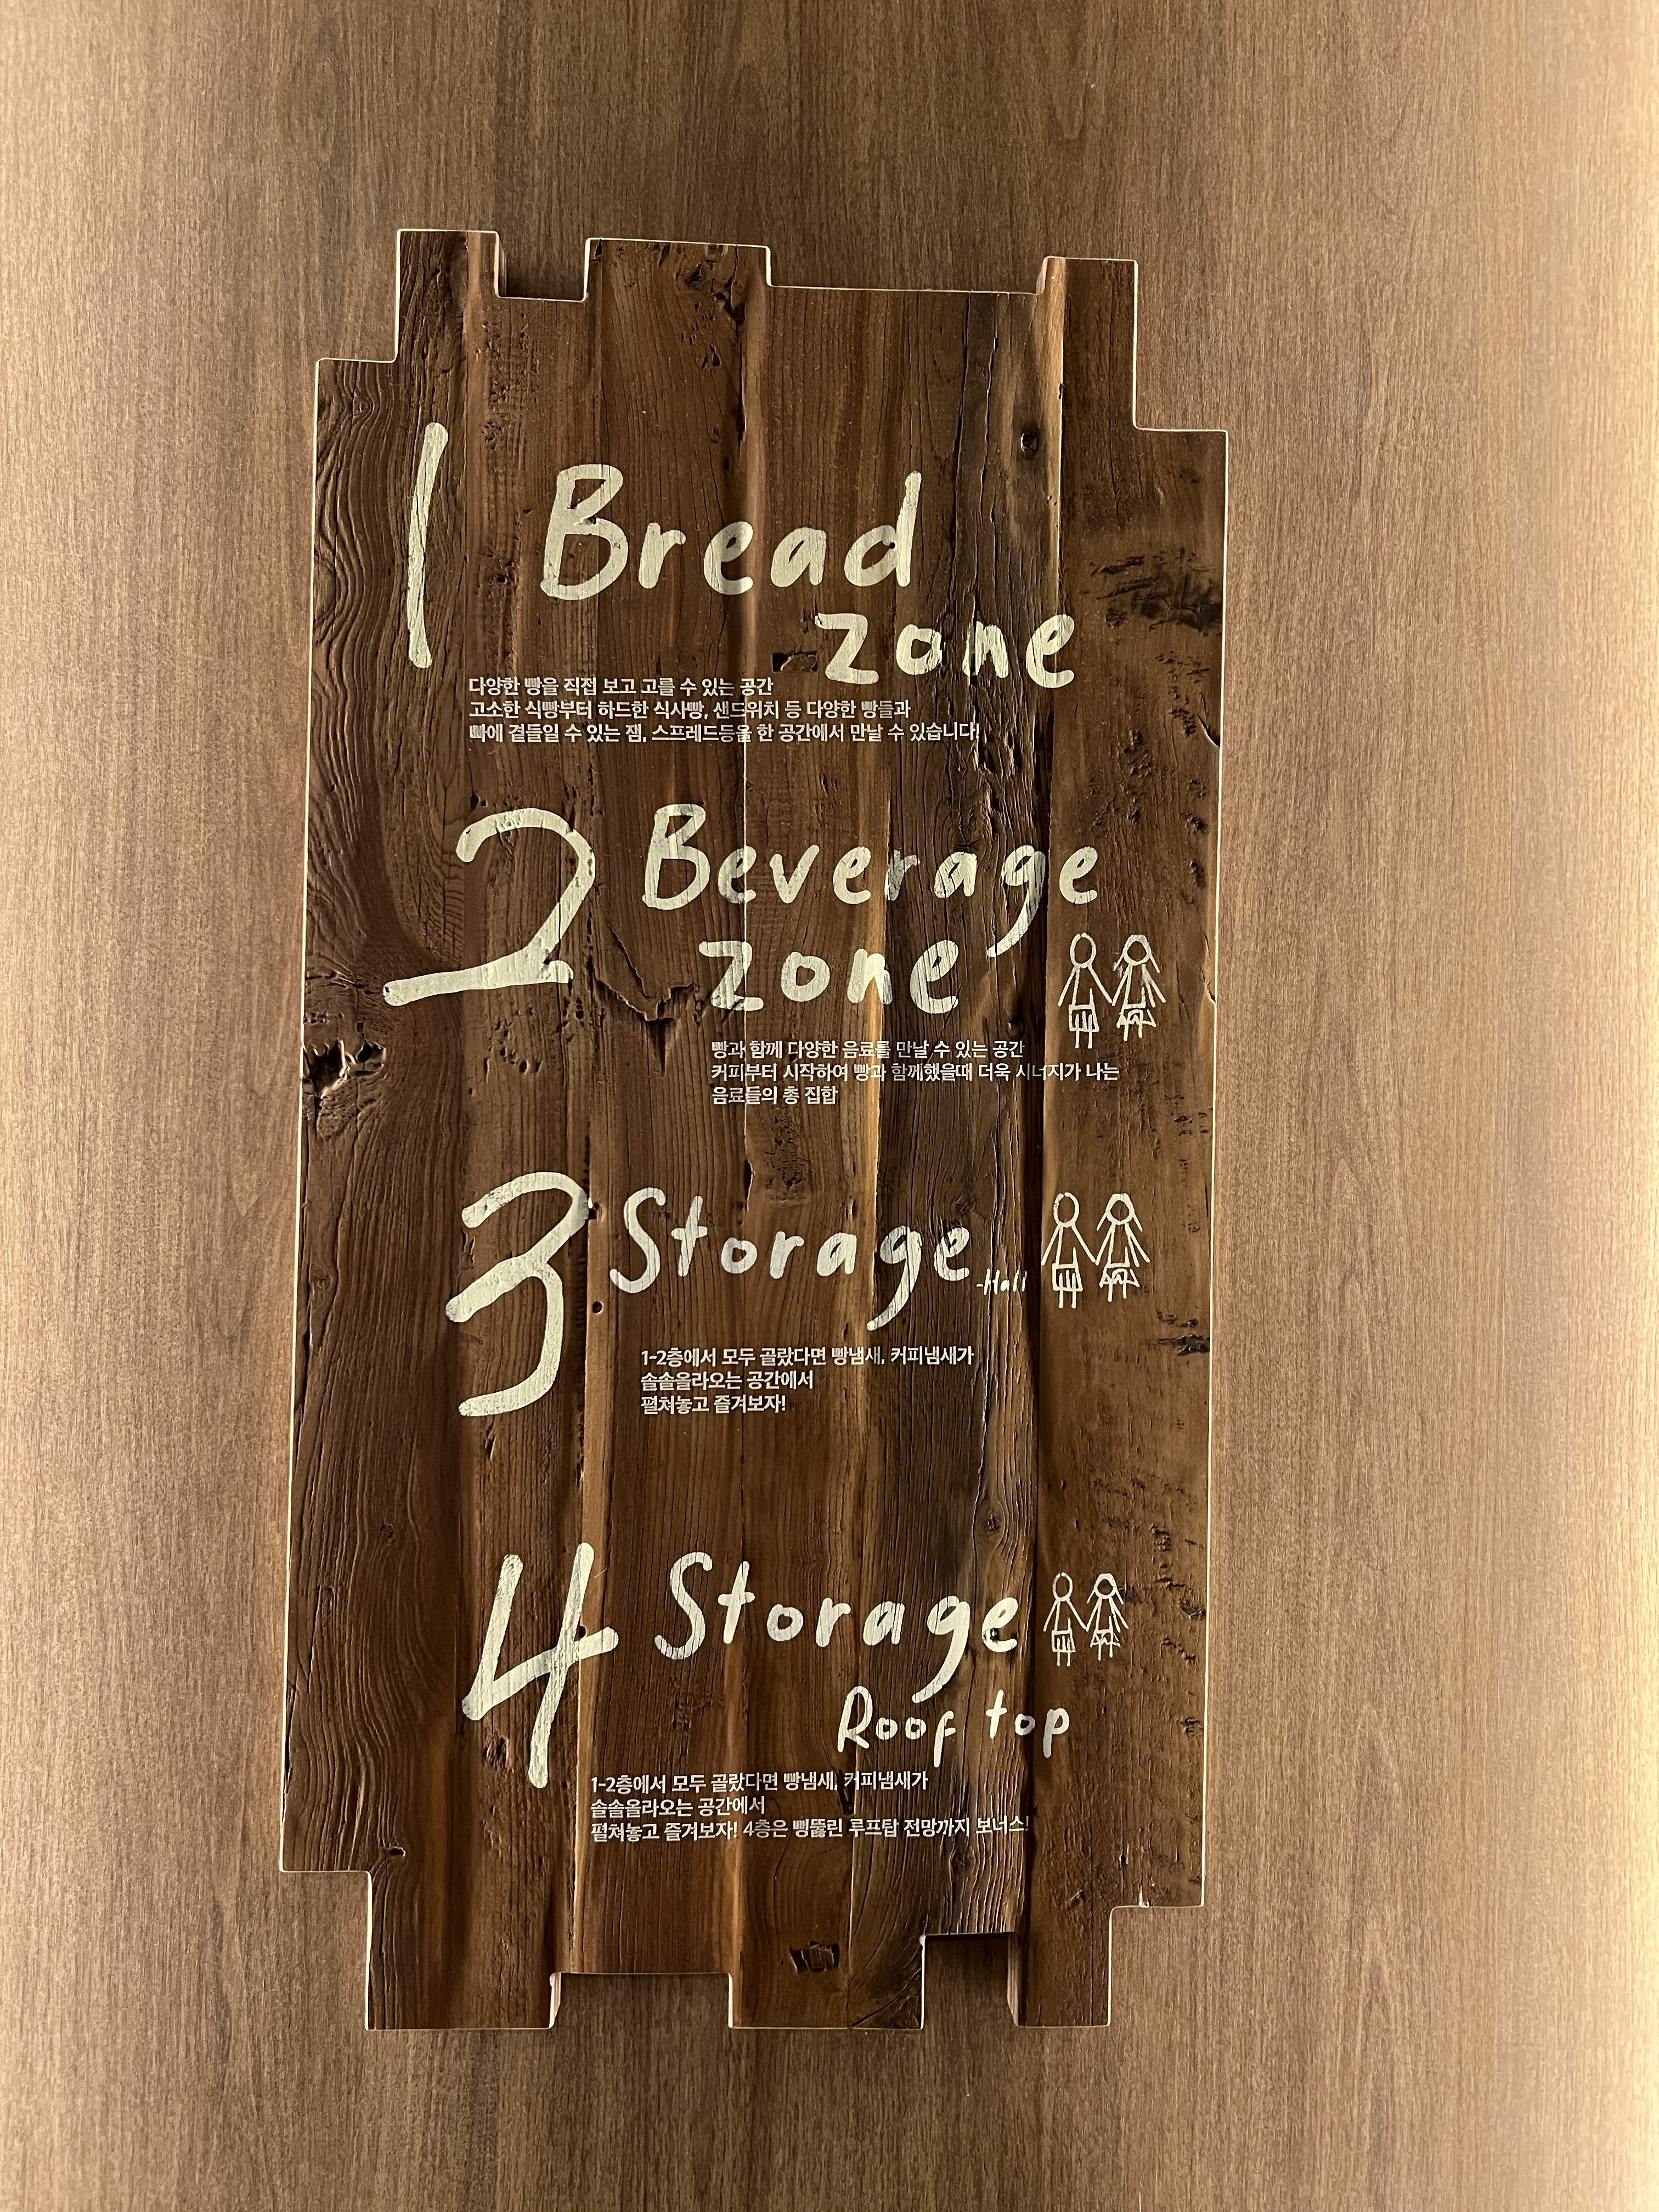 1 Bread
zone
다양한 빵을 직접 보고 고를 수 있는 공간
고소한 식빵부터 하드한 식사빵, 샌드위치 등 다양한 빵들과
빠에 곁들일 수 있는 잼, 스프레드등을 한 공간에서 만날 수 있습니다!
2 Beverage
zone
빵과 함께 다양한 음료를 만날 수 있는 공간
커피부터 시작하여 빵과 함께했을때 더욱 시너지가 나는
음료들의 총 집합
3 Storage -Hall
1-2층에서 모두 골랐다면 빵냄새, 커피냄새가
솔솔올라오는 공간에서
펼쳐놓고 즐겨보자!
4 Storage
Roof top
1-2층에서 모두 골랐다면 빵냄새, 커피냄새가
솔솔올라오는 공간에서
펼쳐놓고 즐겨보자! 4층은 삥뚫린 루프탑 전망까지 보너스!